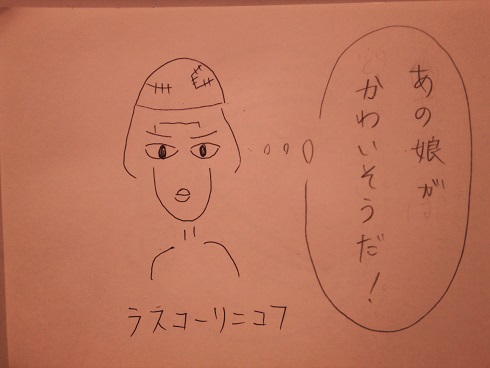 あの娘が
かわいそうだ！
ラスコーリニコフ